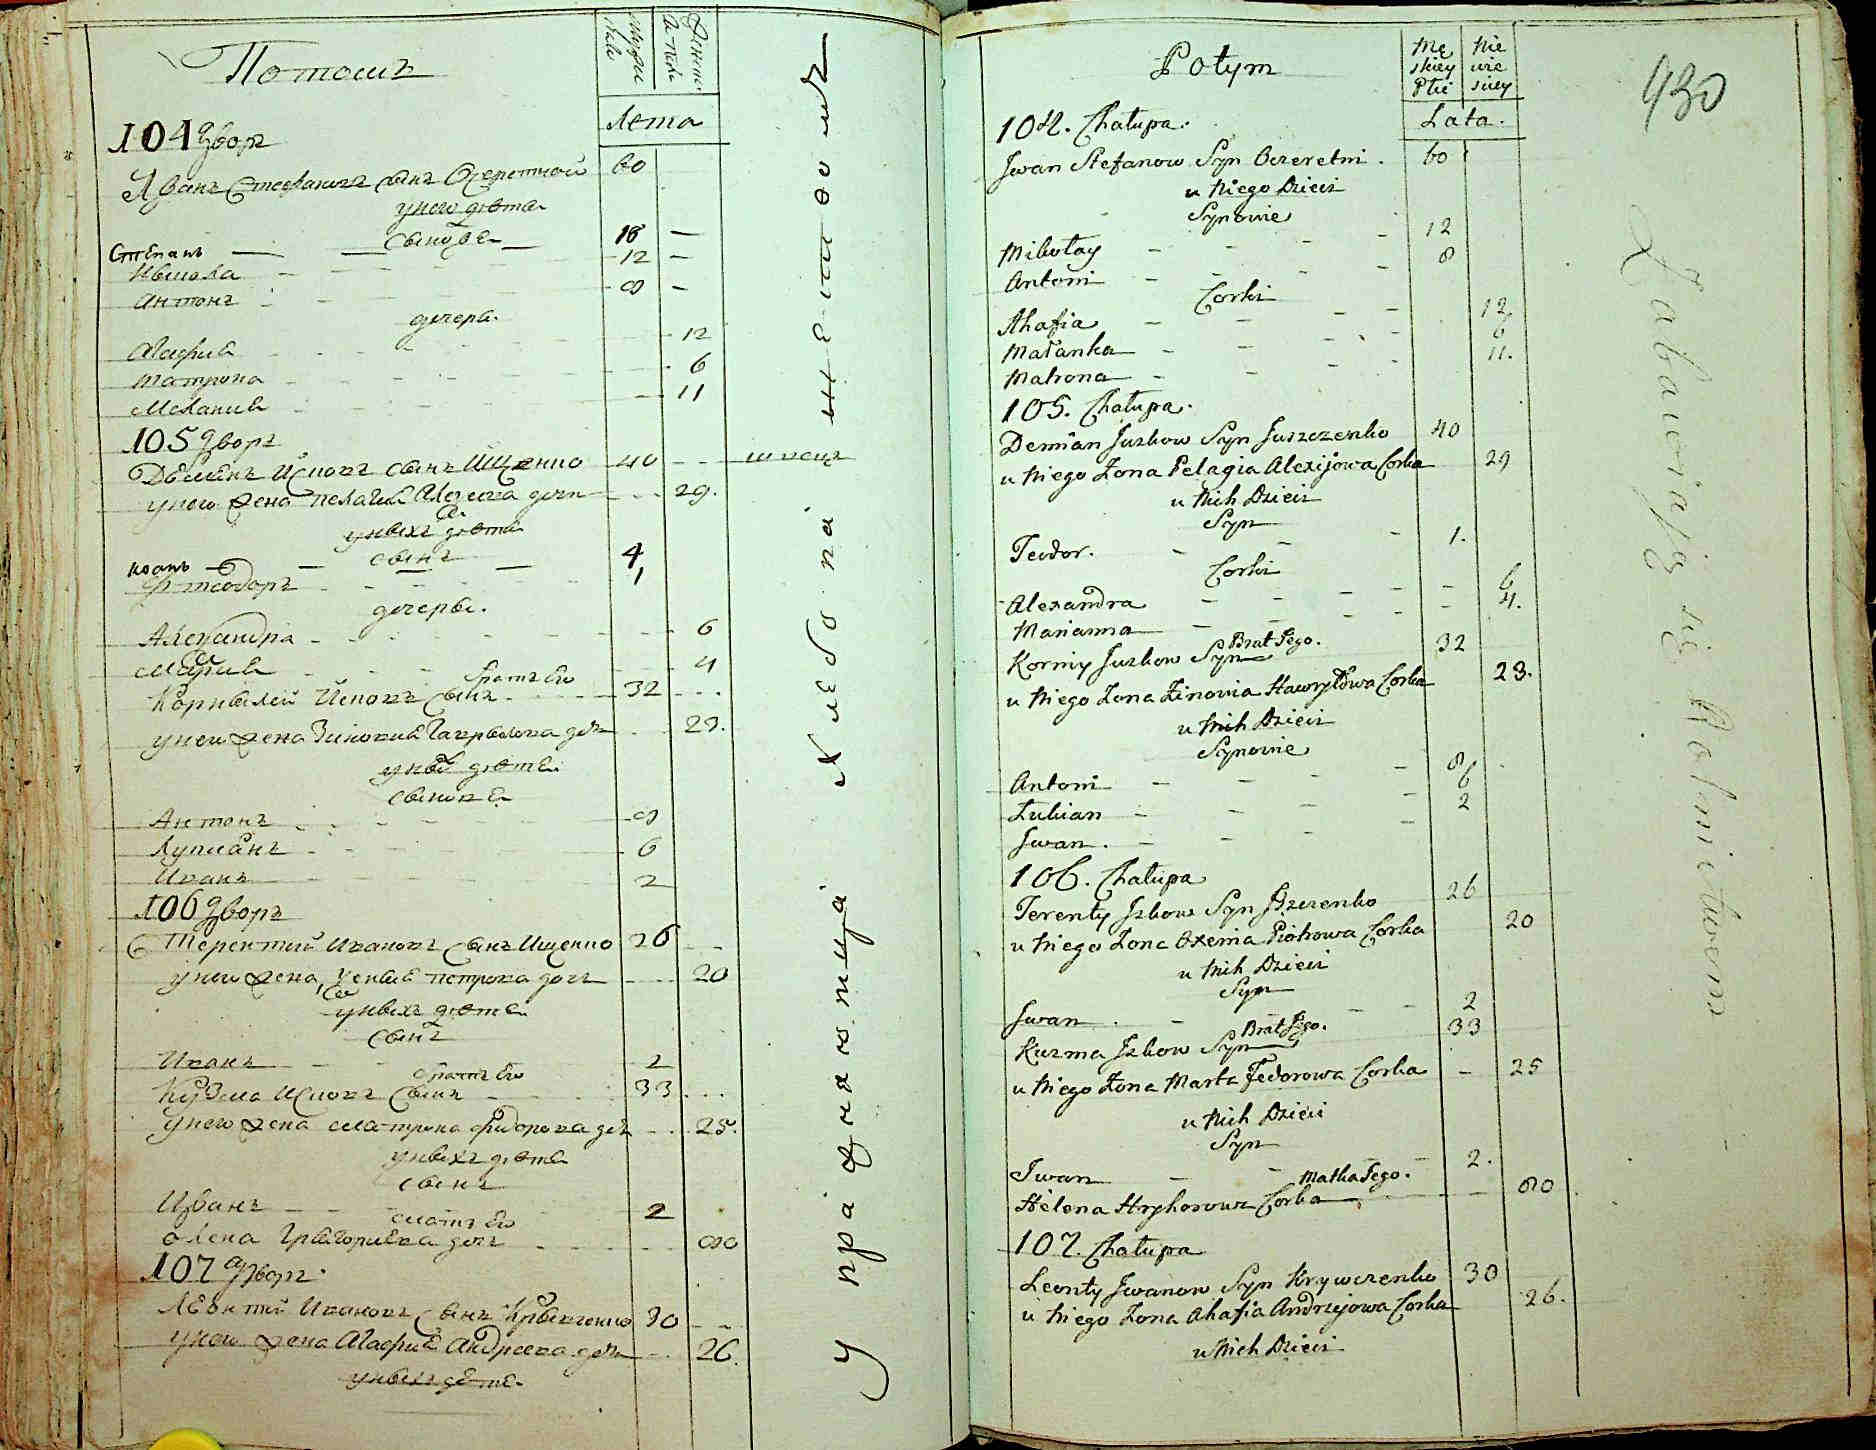 Потомъ
Лета
104 дворъ
Иванъ Стефановъ сынъ Очеретной 60
у него дети
Степанъ сынове 18
Никола 12
Антонъ 8
дочери
Агафия 12
Матрона 6
Мелания 11
105 дворъ
Демянъ сынъ Ищенко 40 швецъ
у него жена Пелагия Алексеева дочь 29.
у нихъ дети
сынъ
Иоанъ 4
Фтеодоръ 1
дочери.
Александра 6
Мария 4
братъ Его
Корнылей сынъ 32
у него жена Зиновия Гаврылова дочь 23.
у нихъ дети
сынове
Антонъ 8
Лукиянъ 6
Иванъ 2
106 дворъ
Терентий сынъ Ищенко 26
у него жена Ксения Петрова дочь 20
у нихъ дети
сынъ
Иванъ 2
братъ Его
Кузма сынъ 33
у него жена Матрона Фидорова дочь 25.
у нихъ дети
сынъ
Иванъ 2
мать Его
Олена Грыгориева дочь 80
107 дворъ
Леонтий Ивановъ сынъ Крывченко 30
у него жена Агафия Андреева дочь 26.
у нихъ дети
Potym
Mę skiey Płci
Nie wie skiey
Lata.
430
104. Chałupa.
Jwan Stefanow Syn Oczeretni. 60
u Niego Dzieci
Synowie
Mikołay 12
Antoni 8
Corki
Ahafia 12
Małanka 6
Matrona 11.
105. Chałupa.
Demian Juskow Syn Juszczenko 40
u Niego Zona Pelagia Alexijowa Corka 29
u Nich Dzieci
Syn
Teodor. 1.
Corki
Alexandra 6
Marianna 4.
Brat Jego.
Korniy Juskow Syn 32
u Niego Zona Zinowia Hawryłowa Corka 23.
u Nich Dzieci
Synowie
Antoni 8
Łukian 6
Jwan. 2
106. Chałupa
Terenty Jzkow Syn Jszczenko 26
u Niego Zona Oxenia Piotrowa Corka 20
u Nich Dzieci
Syn
Jwan. 2
Brat Jego.
Kuzma Jzkow Syn 33
u Niego Zona Marta Fedorowa Corka 25
u Nich Dzieci
Syn
Jwan 2.
Matka Jego.
Helena Hryhorowa Corka 80
107. Chałupa
Leonty Jwanow Syn Krywczenko 30
u Niego Zona Ahafia Andrzejowa Corka 26.
u Nich Dzieci
Zabawiają się Rolnictwem